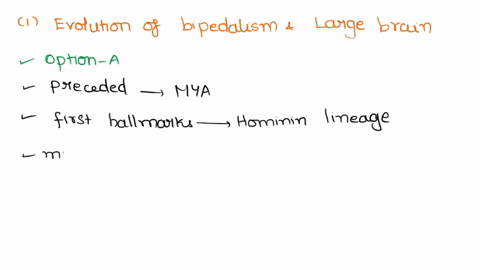 (1) Evolution of bipedalism & Large brain
✓ Option-A
✓ Preceded → MYA
✓ first hallmarks → Hominin lineage
✓ m